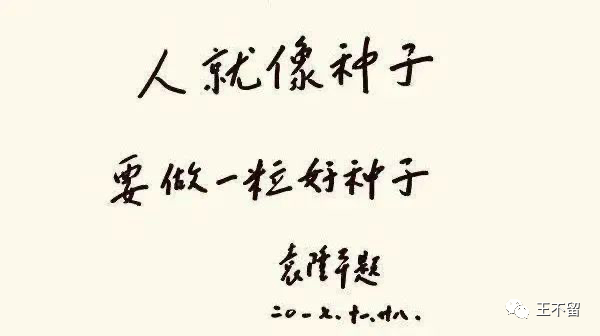 人就像种子
要做一粒好种子
袁隆平题
二〇一七、十一、廿八.
王不留